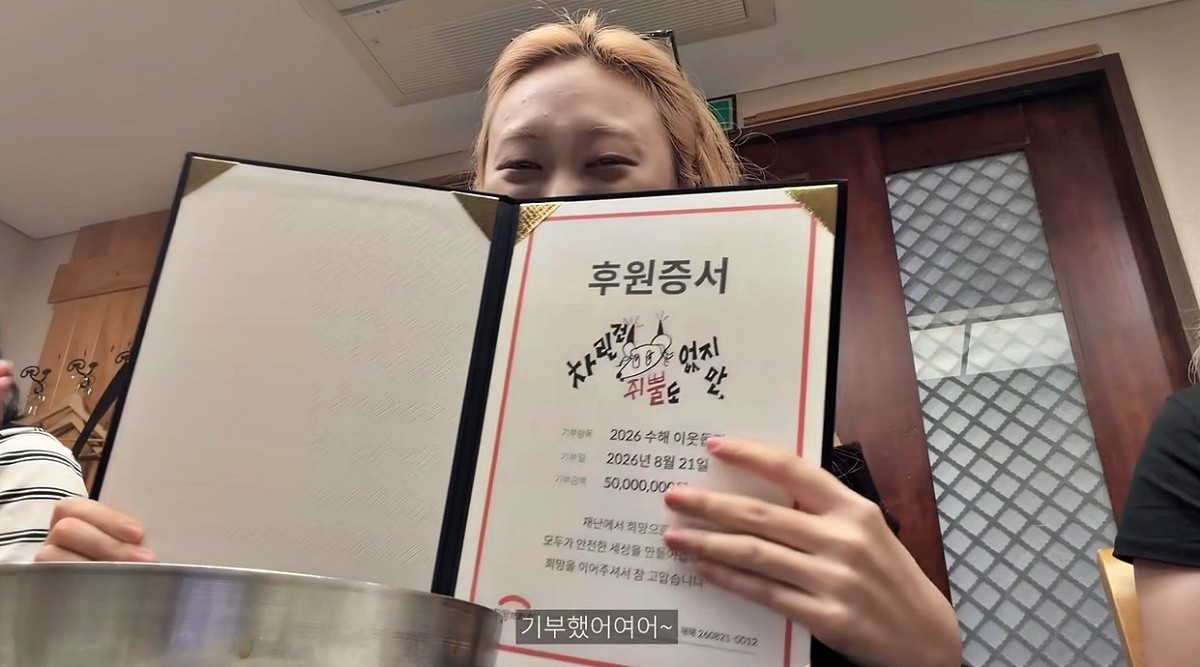 후원증서
차린건
쥐뿔도
없지만
기부항목 2026 수해 이웃돕기
기부일 2026년 8월 21일
기부금액 50,000,000원
재난에서 희망으로
모두가 안전한 세상을 만들어
희망을 이어주셔서 참 고맙습니다
260821-0012
기부했어여어~